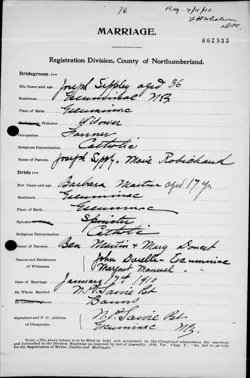 76
Reg. 4/11/10.
MARRIAGE.
002333
Registration Division, County of Northumberland.
Bridegroom:
His Name and Age, Joseph Sippley aged 36
Residence Escuminac NB
Place of Birth Escuminac
Widower
Occupation Farmer
Religious Denomination Catholic
Name of Parents Joseph Sippy. Marie Robichaud
Bride
Her Name and Age, Barbara Martin aged 17 yrs
Residence Escuminac
Place of Birth Escuminac
Spinster
Religious Denomination Catholic
Name of Parents Ben Martin & Mary
Names and Residences of Witnesses John Escuminac
Margaret Manuel "
Date of Marriage January 17th 1910
By whom Married
By License or Banns Banns
Signature and P. O. Address of Clergyman
Escuminac NB.